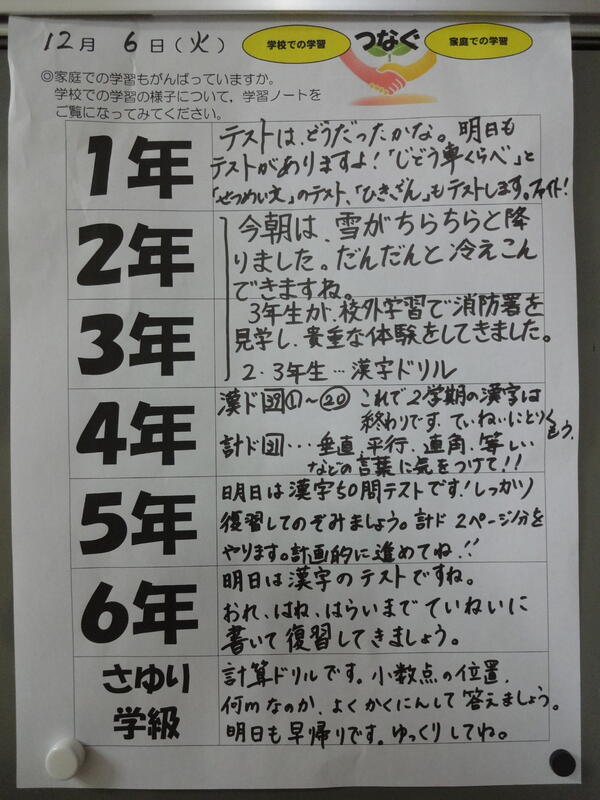 12月 6日(火)
学校での学習 つなぐ 家庭での学習
◎家庭での学習もがんばっていますか。
学校での学習の様子について，学習ノートを
ご覧になってみてください。
1年
テストは、どうだったかな。明日も
テストがありますよ!「じどう車くらべ」と
「せつめい文」のテスト、「ひきざん」もテストします。ファイト!
2年
今朝は、雪がちらちらと降
りました。だんだんと冷えこん
できますね。
3年
3年生が、校外学習で消防署を
見学し、貴重な体験をしてきました。
2・3年生…漢字ドリル
4年
漢ド39①~⑳ これで2学期の漢字は
終わりです。ていねいにとりくもう。
計ド31… 垂直、平行、直角、等しい
などの言葉に気をつけて!!
5年
明日は漢字50問テストです!しっかり
復習してのぞみましょう。計ド 2ページ分を
やります。計画的に進めてね!!
6年
明日は漢字のテストですね。
おれ、はね、はらいまでていねいに
書いて復習してきましょう。
さゆり
学級
計算ドリルです。小数点の位置、
何mなのか、よくかくにんして答えましょう。
明日も早帰りです。ゆっくりしてね。